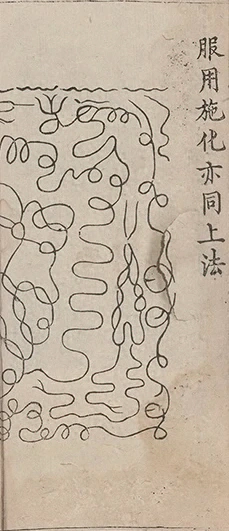 服用施化亦同上法